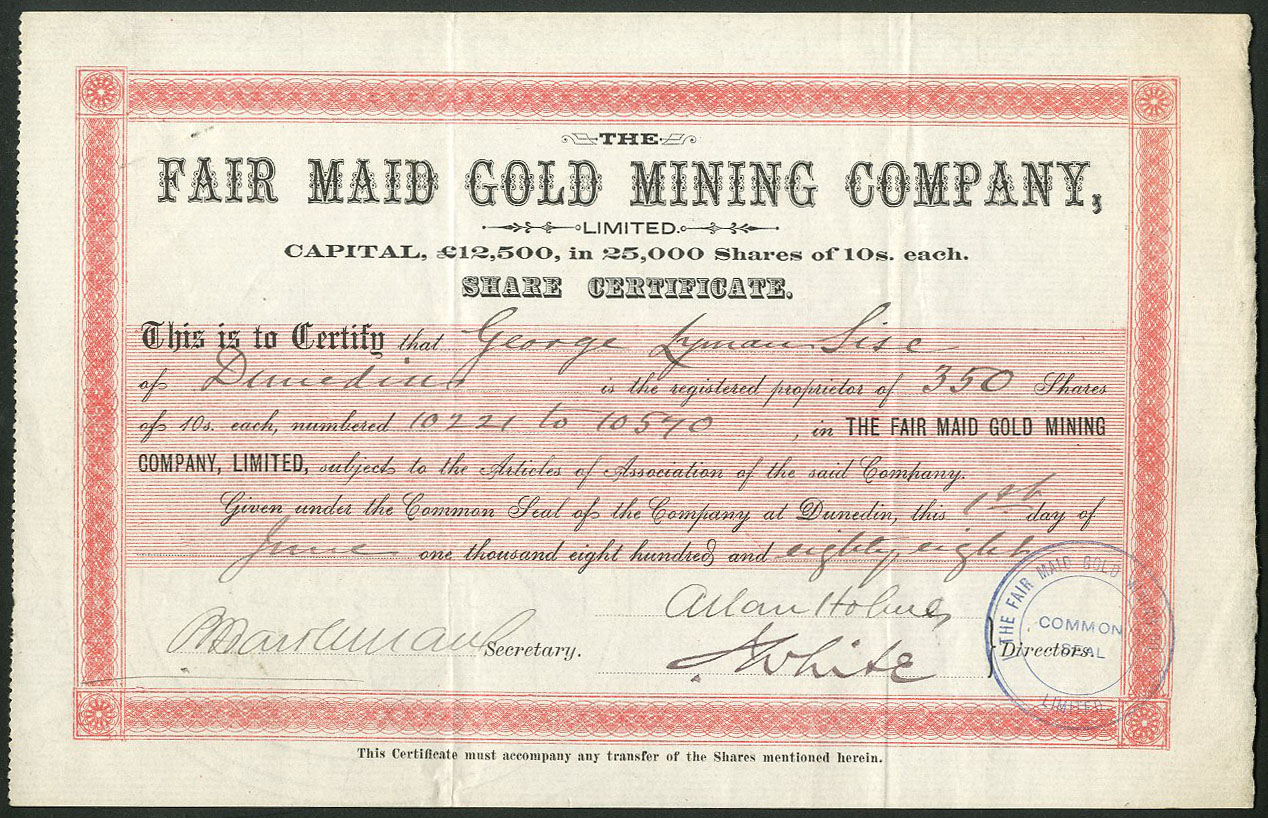 THE
FAIR MAID GOLD MINING COMPANY,
LIMITED.
CAPITAL, £12,500, in 25,000 Shares of 10s. each.
SHARE CERTIFICATE.
This is to Certify that George Lyman Sise
of Dunedin is the registered proprietor of 350 Shares
of 10s. each, numbered 10221 to 10570, in THE FAIR MAID GOLD MINING
COMPANY, LIMITED, subject to the Articles of Association of the said Company.
Given under the Common Seal of the Company at Dunedin, this 1st day of
June one thousand eight hundred and eighty eight
Allan Holmes
Secretary.
J White
Directors.
THE FAIR MAID GOLD
COMMON
SEAL
LIMITED
This Certificate must accompany any transfer of the Shares mentioned herein.